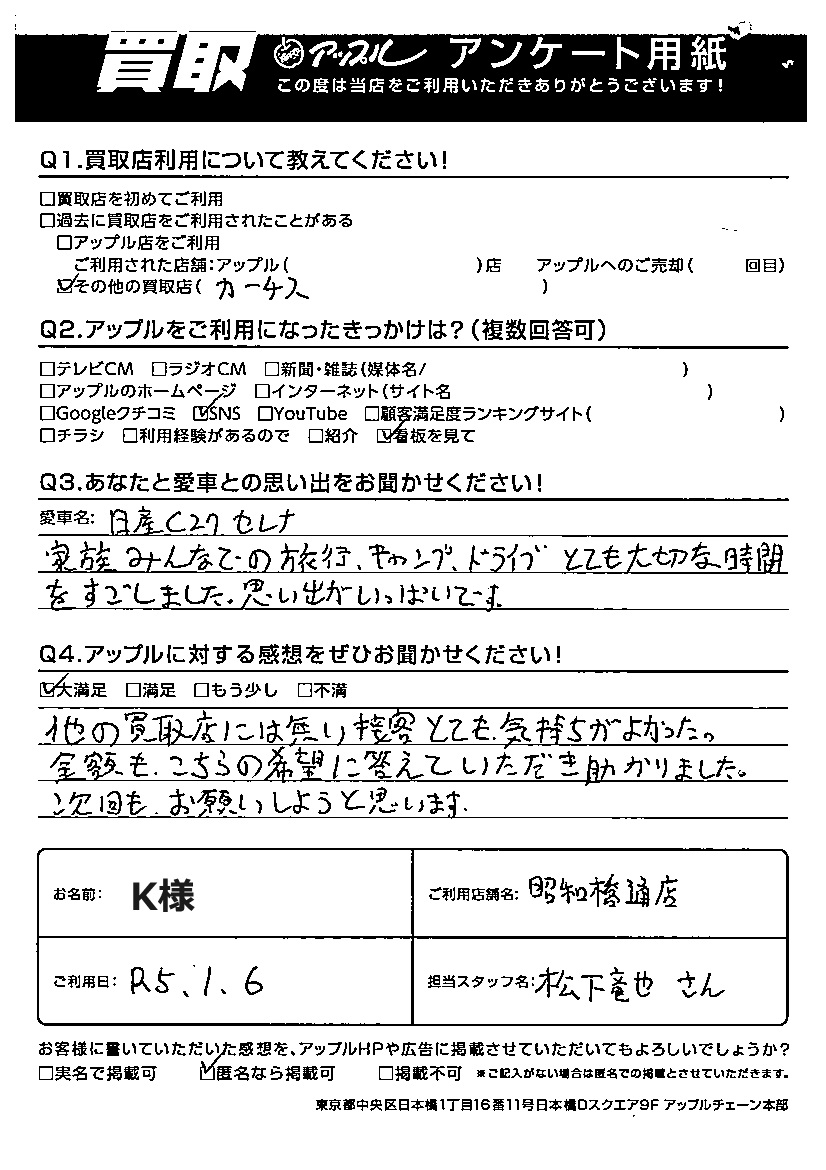 買取 アップル アンケート用紙
この度は当店をご利用いただきありがとうございます!
Q1.買取店利用について教えてください!
□買取店を初めてご利用
□過去に買取店をご利用されたことがある
□アップル店をご利用
ご利用された店舗:アップル( )店 アップルへのご売却( 回目)
☑その他の買取店( カーチス )
Q2.アップルをご利用になったきっかけは?(複数回答可)
□テレビCM □ラジオCM □新聞・雑誌(媒体名/ )
□アップルのホームページ □インターネット(サイト名 )
□Googleクチコミ ☑SNS □YouTube □顧客満足度ランキングサイト( )
□チラシ □利用経験があるので □紹介 ☑看板を見て
Q3.あなたと愛車との思い出をお聞かせください!
愛車名: 日産C27 セレナ
家族みんなでの旅行、キャンプ、ドライブ とても大切な時間
をすごしました。思い出がいっぱいです。
Q4.アップルに対する感想をぜひお聞かせください!
☑大満足 □満足 □もう少し □不満
他の買取店には無い接客とても、気持ちがよかった。
金額も、こちらの希望に答えていただき助かりました。
次回も、お願いしようと思います。
お名前: K様
ご利用店舗名: 昭和橋通店
ご利用日: R5.1.6
担当スタッフ名: 松下竜也 さん
お客様に書いていただいた感想を、アップルHPや広告に掲載させていただいてもよろしいでしょうか?
□実名で掲載可 ☑匿名なら掲載可 □掲載不可 ※ご記入がない場合は匿名での掲載とさせていただきます。
東京都中央区日本橋1丁目16番11号日本橋Dスクエア9F アップルチェーン本部